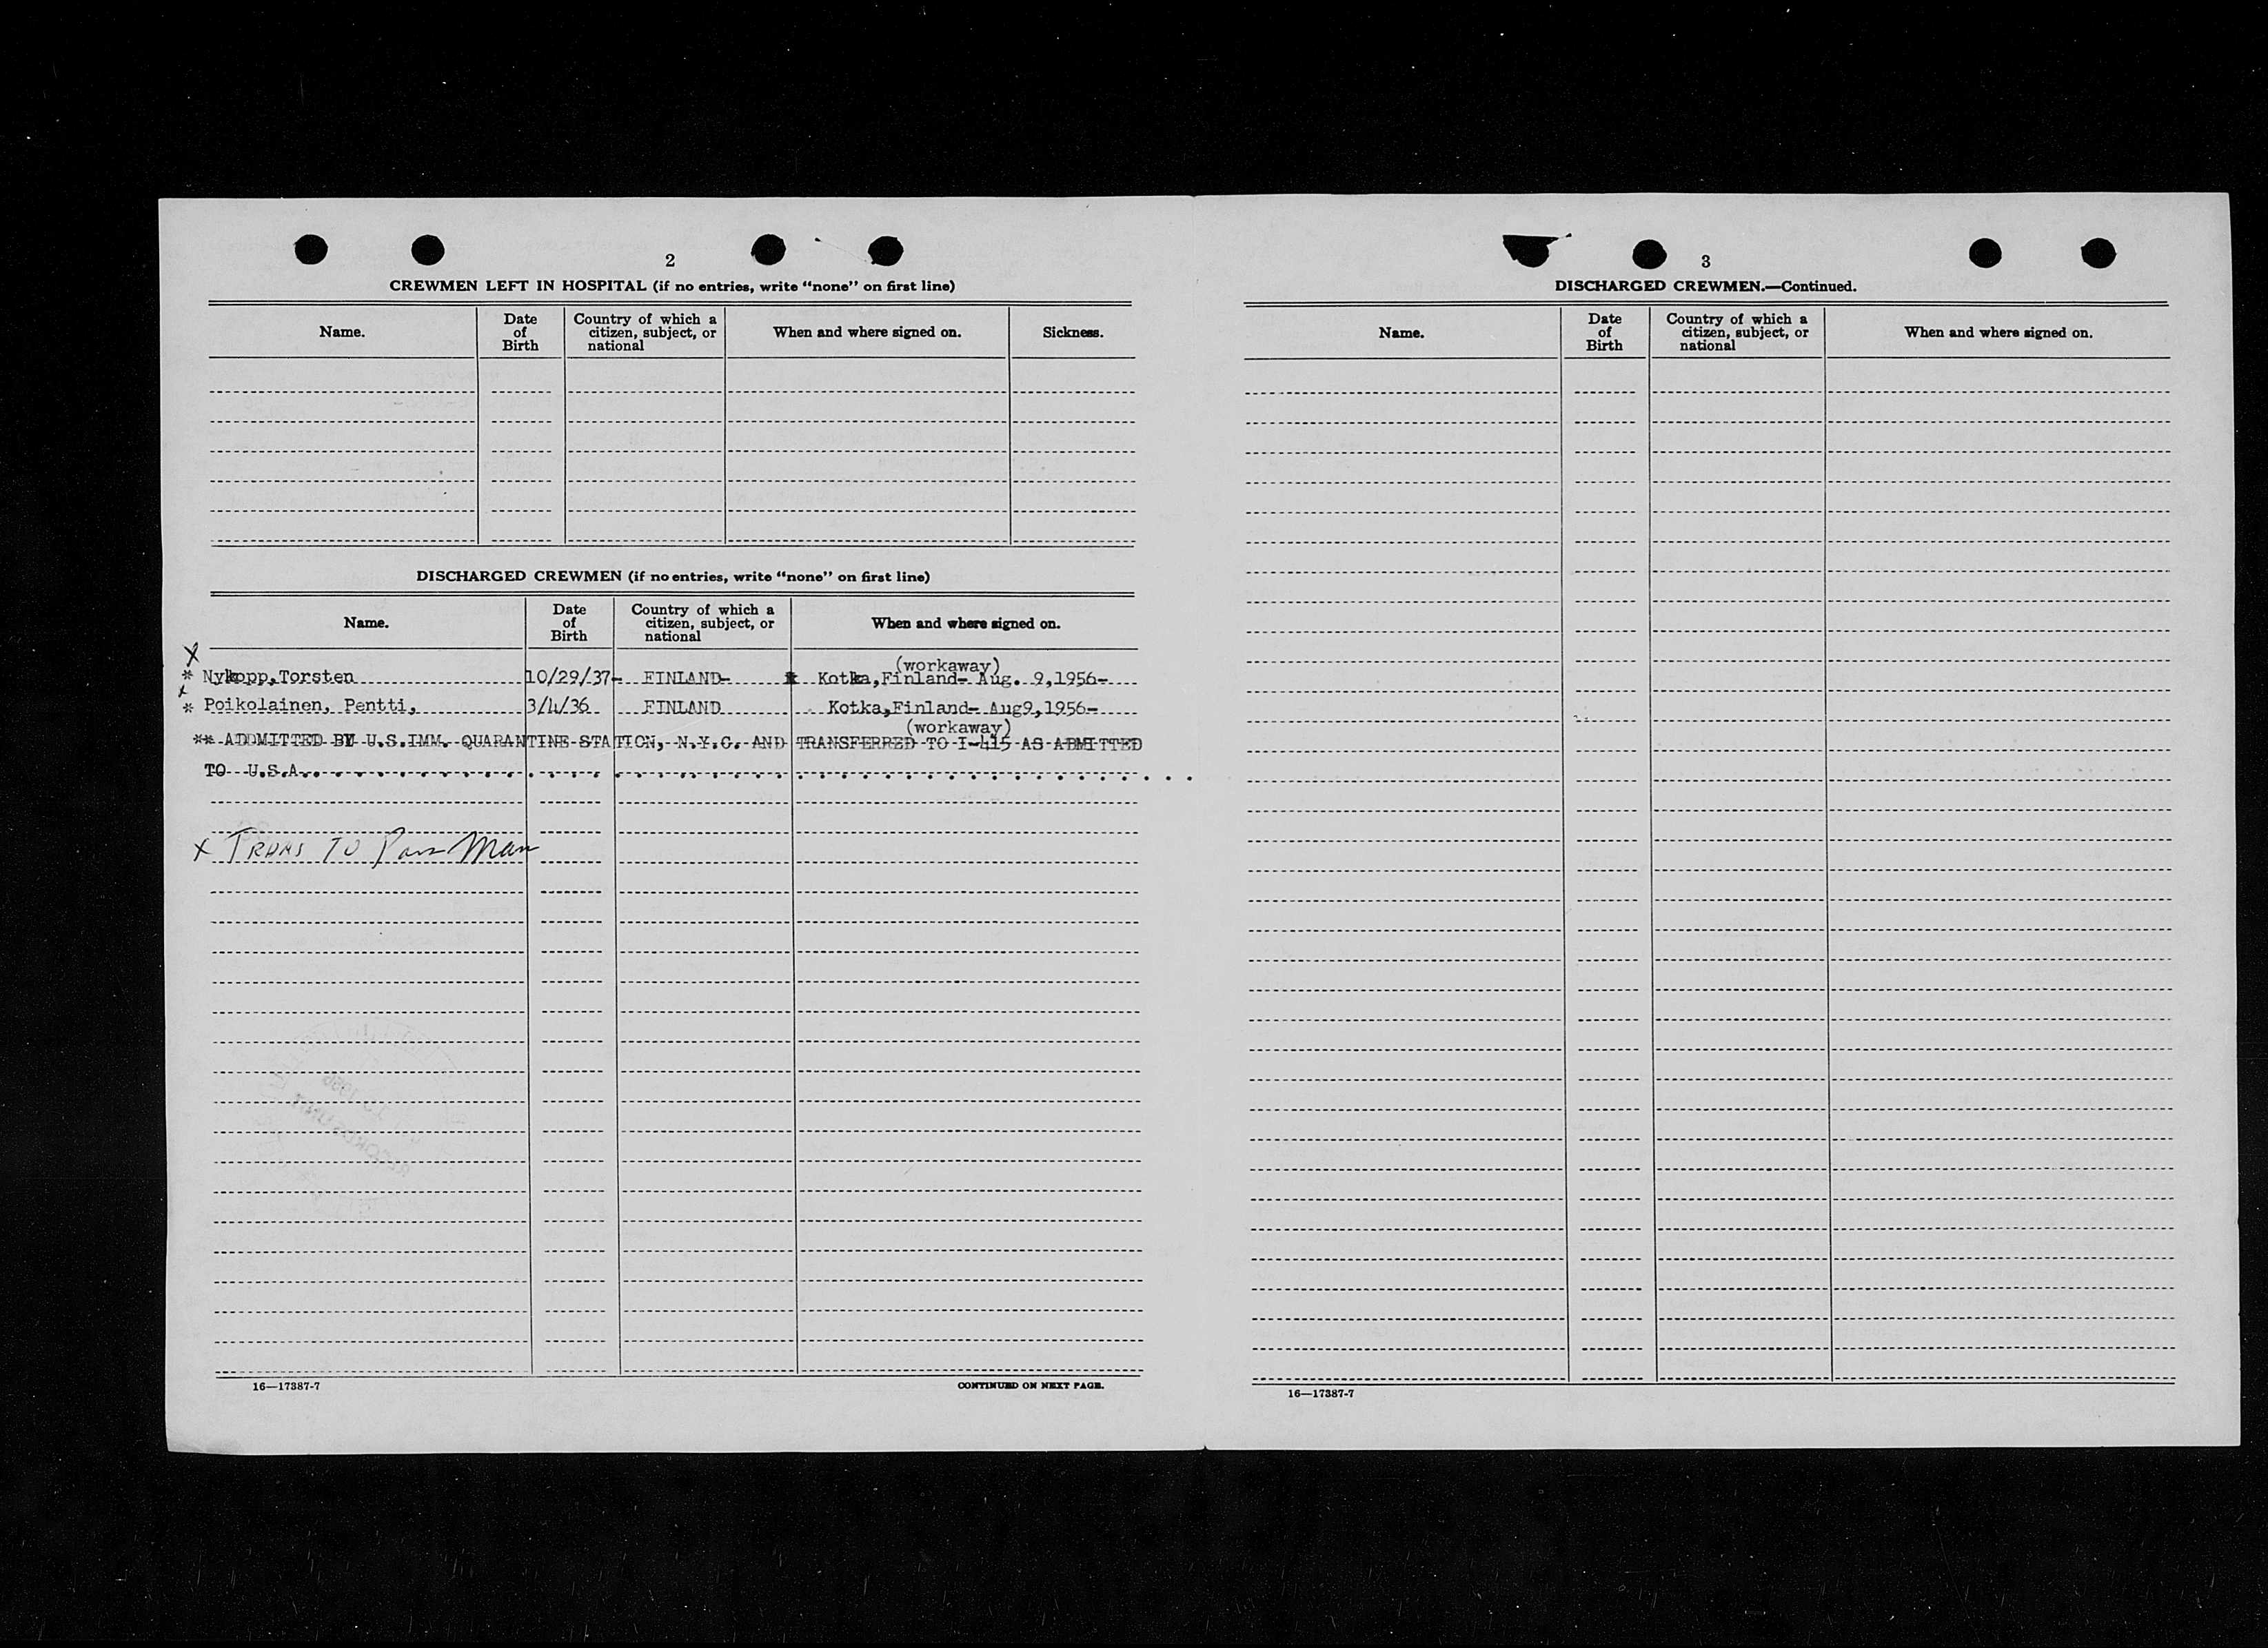 2
CREWMEN LEFT IN HOSPITAL (if no entries, write “none” on first line)
Name.
Date of Birth
Country of which a citizen, subject, or national
When and where signed on.
Sickness.
DISCHARGED CREWMEN (if no entries, write “none” on first line)
Name.
Date of Birth
Country of which a citizen, subject, or national
When and where signed on.
X
(workaway)
* Nykopp,Torsten 10/29/37- FINLAND- * Kotka,Finland- Aug. 9,1956-
x
* Poikolainen, Pentti, 3/4/36 FINLAND Kotka,Finland- Aug9,1956-
(workaway)
** ADDMITTED BY U.S.IMM. QUARANTINE STATION, N.Y.C. AND TRANSFERRED TO I-415 AS ADMITTED
TO U.S.A.
x TRANS TO Pass Man
16—17387-7
CONTINUED ON NEXT PAGE.
3
DISCHARGED CREWMEN.—Continued.
Name.
Date of Birth
Country of which a citizen, subject, or national
When and where signed on.
16—17387-7